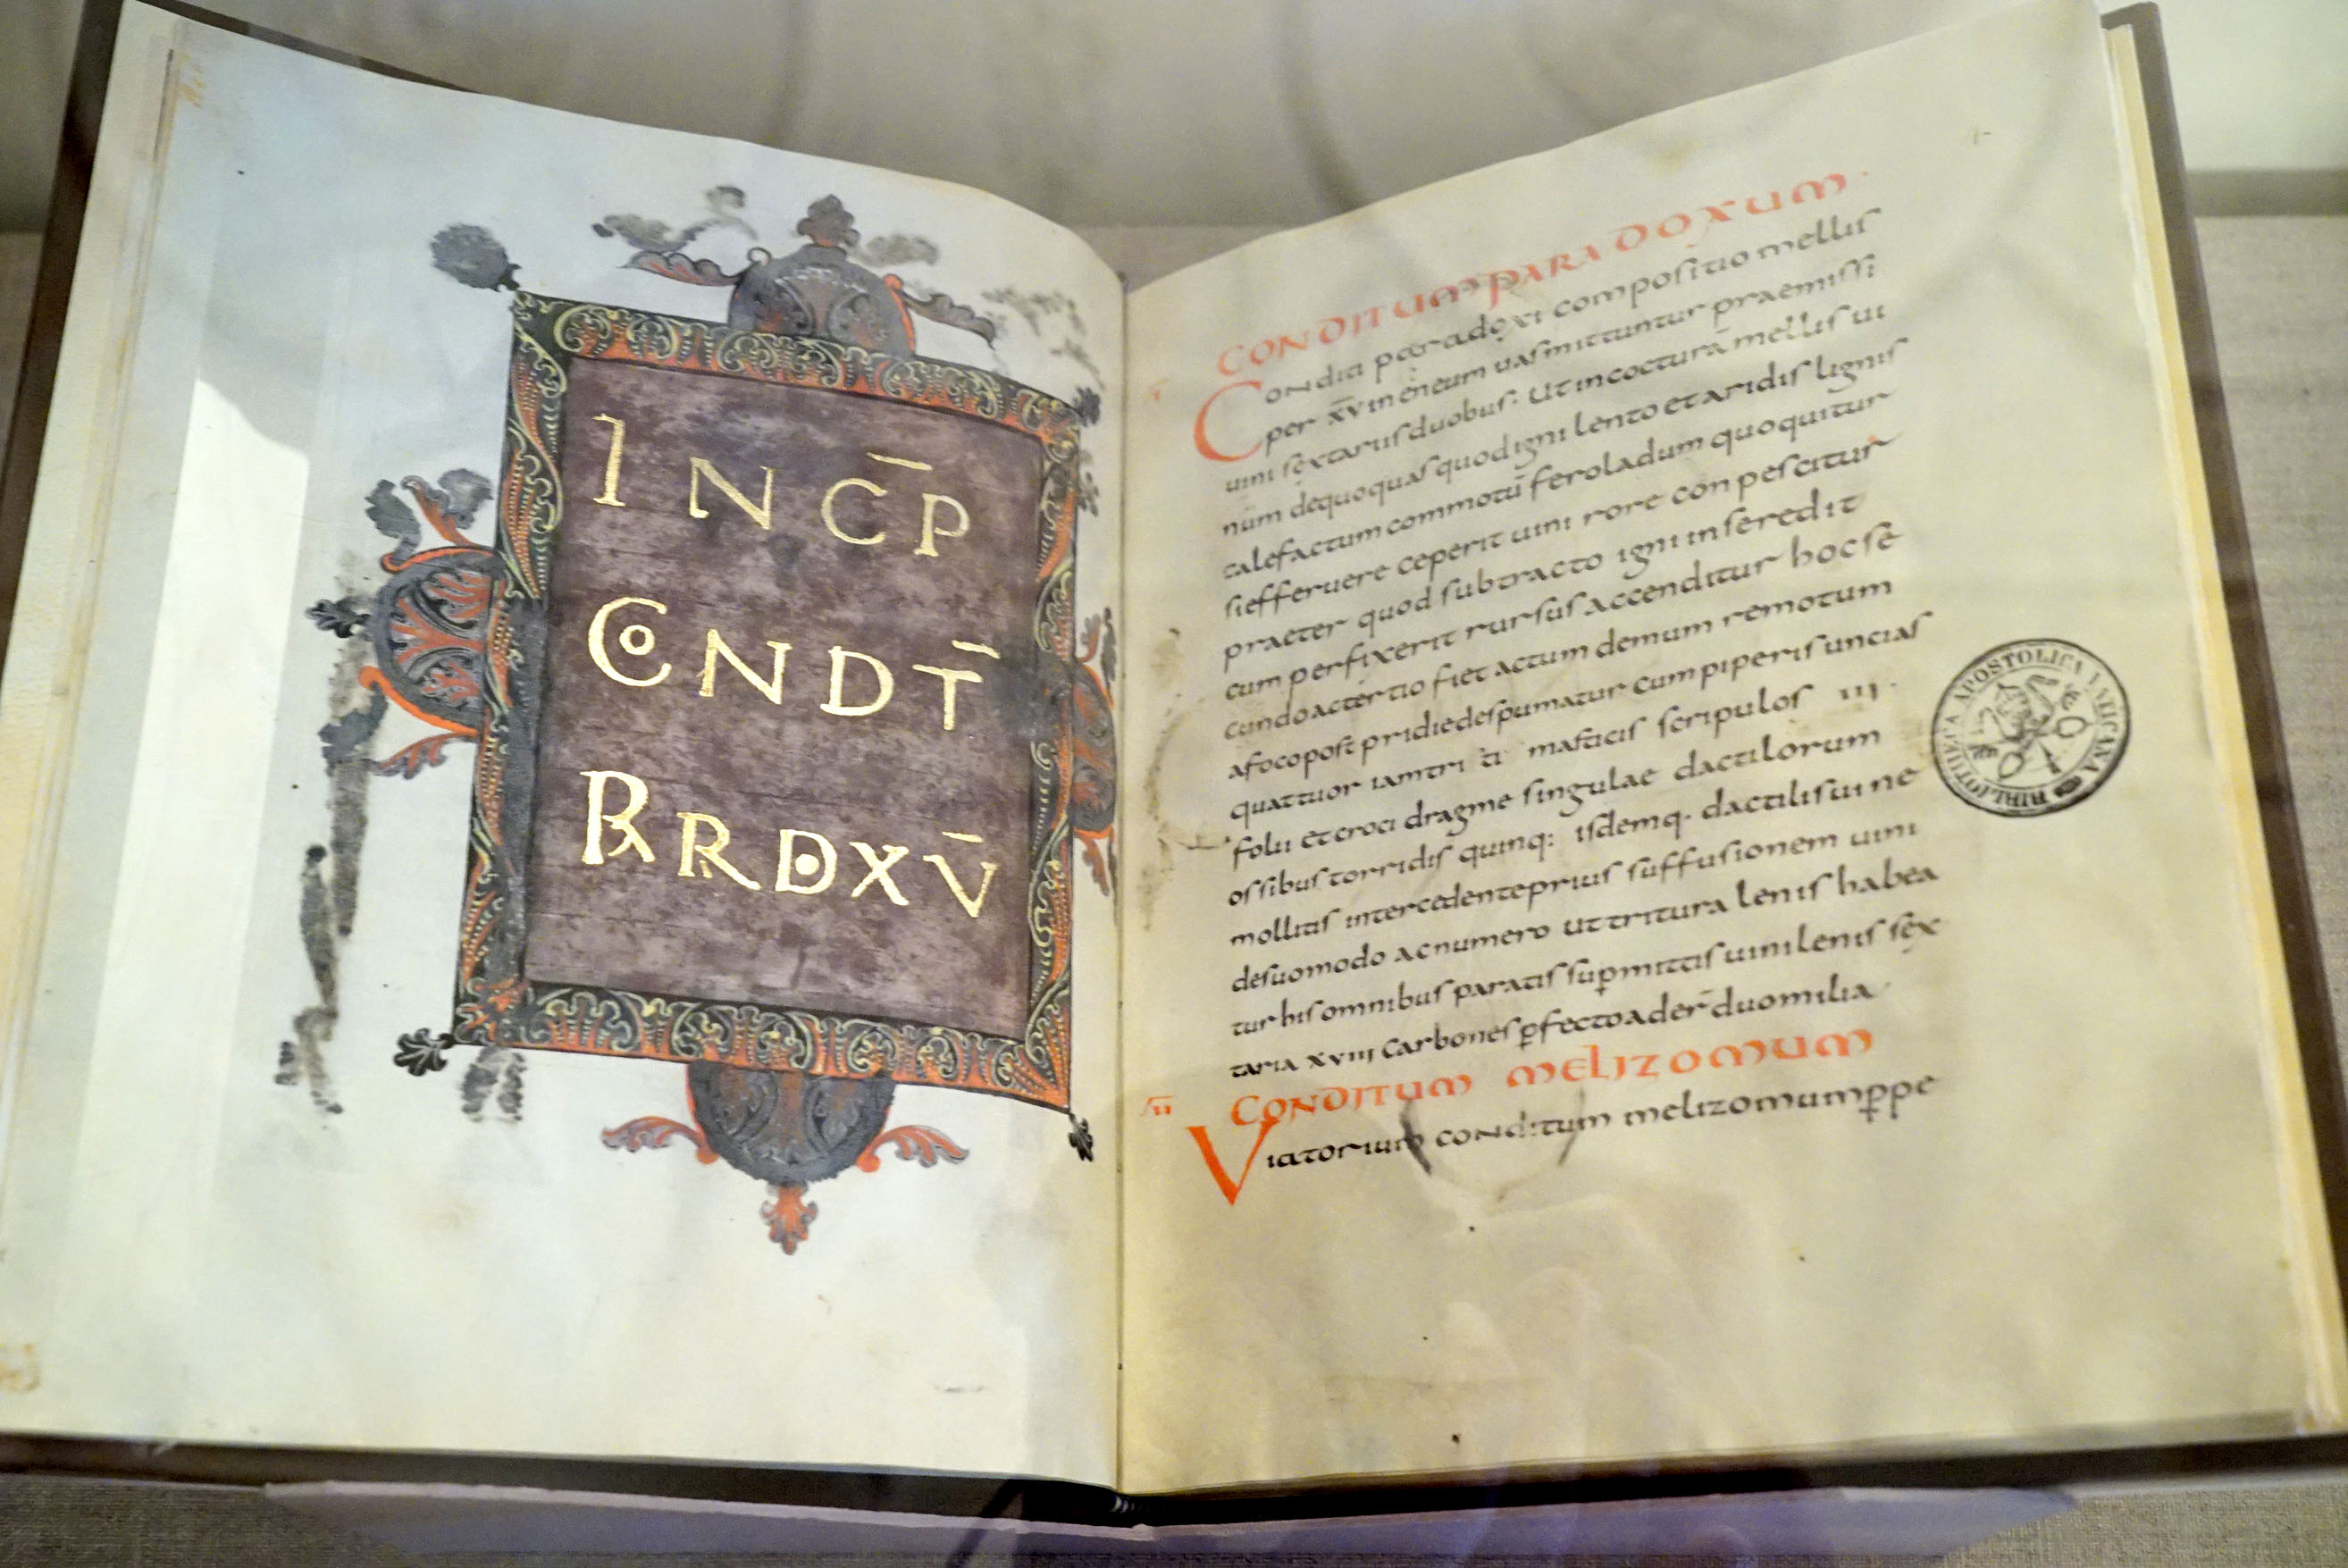 INC̅P
CONDT̅
PARDOXV̅
CONDITUM PARADOXUM·
Conditi paradoxi compositio mellis
per x̅v in eneum uas mittuntur praemissi
uini sextariis duobus· Ut in cocturā mellis ui
num dequoquas quod igni lento et aridis lignis
calefactum commotū ferola dum quoquitur
si efferuere ceperit uini rore conpescitur
praeter quod subtracto igni in se redit
cum perfixerit rursus accenditur hoc se
cundo ac tertio fiet actum demum remotum
a foco post pridie despumatur cum piperis uncias
quattuor iam tri ti masticis scripulos III·
folii et croci dragme singulae dactilorum
ossibus torridis quinq: isdemq· dactilis uine
mollitis intercedente prius suffusionem uini
de suo modo ac numero ut tritura lenis habea
tur his omnibus paratis sup̱mittis uini lenis sex
taria XVIII carbones p̱fecto ader̄ duo milia
II CONDITUM MELIZOMUM
Viatorium conditum melizomum p̱pe
BIBLIOTHECA APOSTOLICA VATICANA